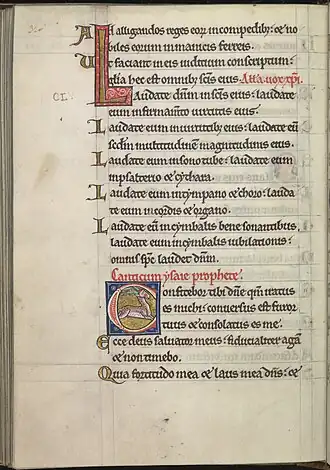 Ad alligandos reges eorꝭ in compedibꝰ: ⁊ no
biles eorum in manicis ferreis.
Ut faciant in eis iudicium conscriptum:
gl̄ia hec est omnibꝰ sc̄is eius. Aƚƚa. vox xp̄i.
CL:
Laudate dn̄m in sc̄is eius: laudate
eum in firmam̄to virtutis eius.
Laudate eum in uirtutibꝰ eius: laudate eū
scdm̄ multitudinem magnitudinis eius.
Laudate eum in sono tube: laudate eum
in psalterio ⁊ cythara.
Laudate eum in tympano ⁊ choro: lauda
te eum in cordis ⁊ organo.
Laudate eū in cymbalis bene sonantibus,
laudate eum in cymbalis iubilationis:
omnis sp̄c laudet dn̄m.
Canticum ysaie prophete.
Confitebor tibi dn̄e qm̄ iratus
es michi: conuersus est furor
tuus ⁊ consolatus es me.
Ecce deus saluator meus: fiducialiter agā
⁊ non timebo.
Quia fortitudo mea ⁊ laus mea dn̄s: ⁊